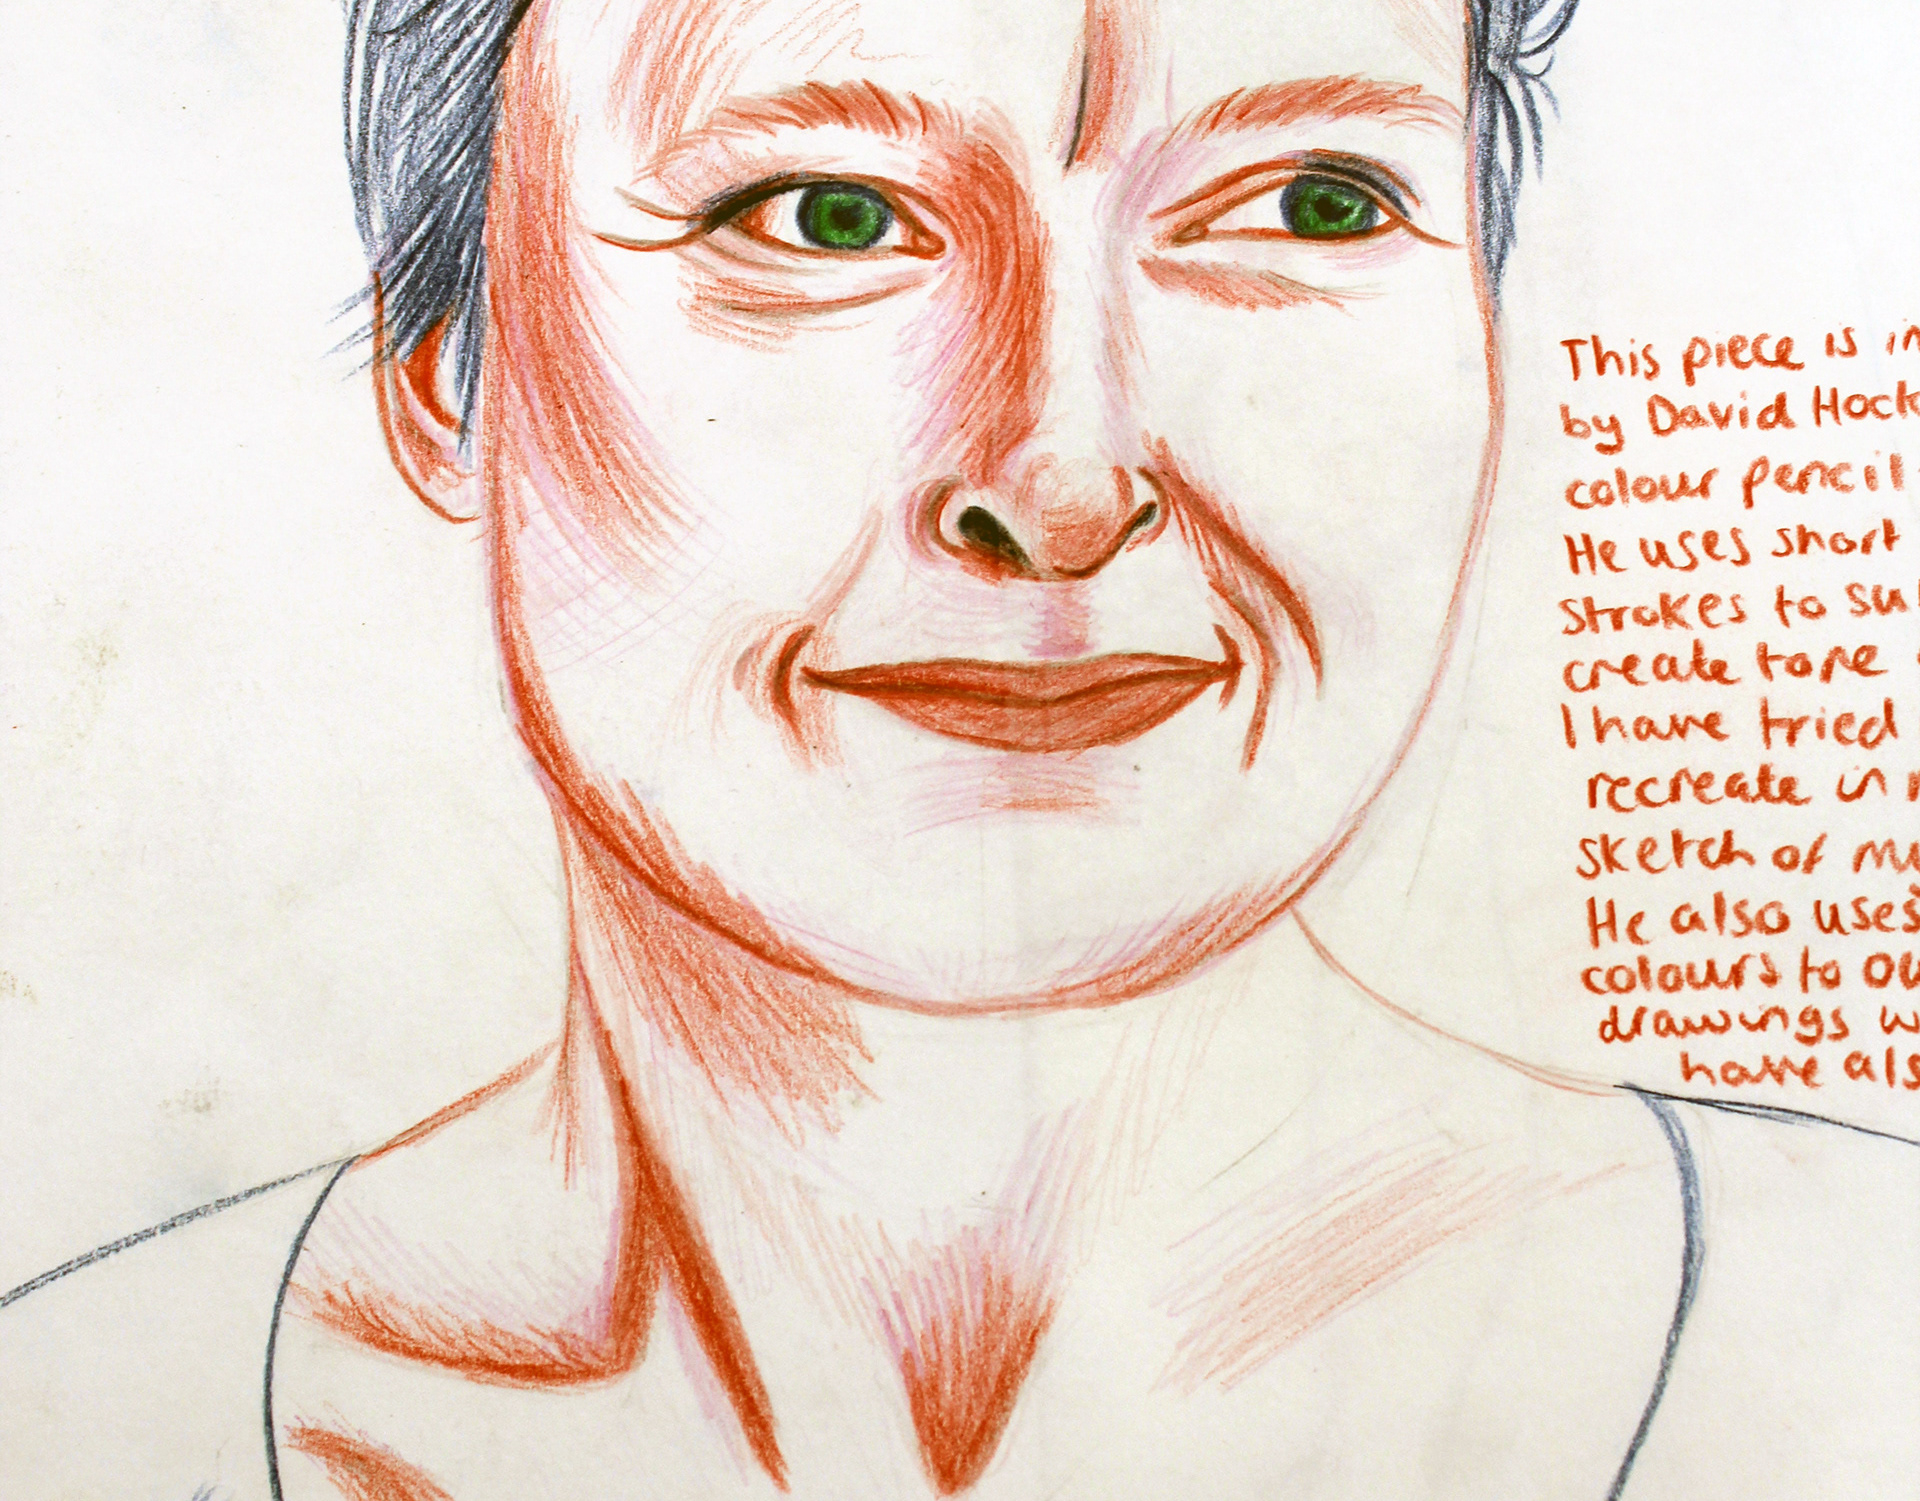 This piece is in
by David Hock
colour pencil
He uses short
strokes to su
create tone
I have tried
recreate in
sketch of
He also uses
colours to ou
drawings w
have als